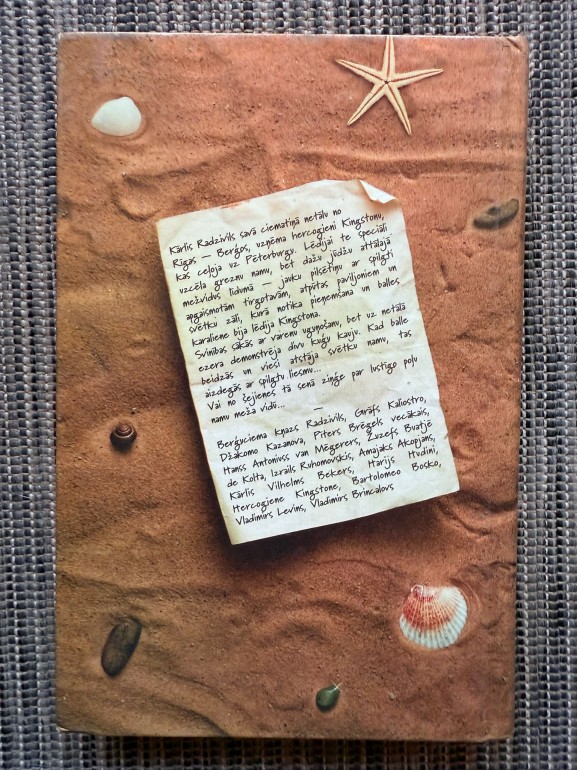 Kārlis Radzivils savā ciematiņā netālu no
Rīgas — Berģos, uzņēma hercogieni Kingstonu,
kas ceļoja uz Pēterburgu. Lēdijai te speciāli
uzcēla greznu namu, bet dažu jūdžu attālajā
mežvidus līdumā — jauku pilsētiņu ar spilgti
apgaismotām tirgotavām, atpūtas paviljoniem un
svētku zāli, kurā notika pieņemšana un balles
karaliene bija lēdija Kingstona.
Svinības sākās ar varenu uguņošanu, bet uz netālā
ezera demonstrēja divu kuģu kauju. Kad balle
beidzās un viesi atstāja svētku namu, tas
aizdegās ar spilgtu liesmu...
Vai no šejienes tā senā ziņģe par lustīgo poļu
namu meža vidū...
—
Berģuciema kņazs Radzivils, Grāfs Kaliostro,
Džakomo Kazanova, Piters Brēgels vecākais,
Hanss Antonivss van Mēgerers, Žuzefs Buatjē
de Kolta, Izrails Ruhomovskis, Amajaks Akopjans,
Kārlis Vilhelms Bekers, Harijs Hudini,
Hercogiene Kingstone, Bartolomeo Bosko,
Vladimirs Levins, Vladimirs Brincalovs